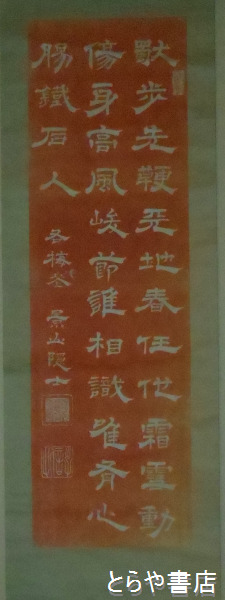 獣步先鞭天地春任他霜雪動
傷身高風峻節誰相識唯有心
腸鐵石人
冬梅 景山
とらや書店